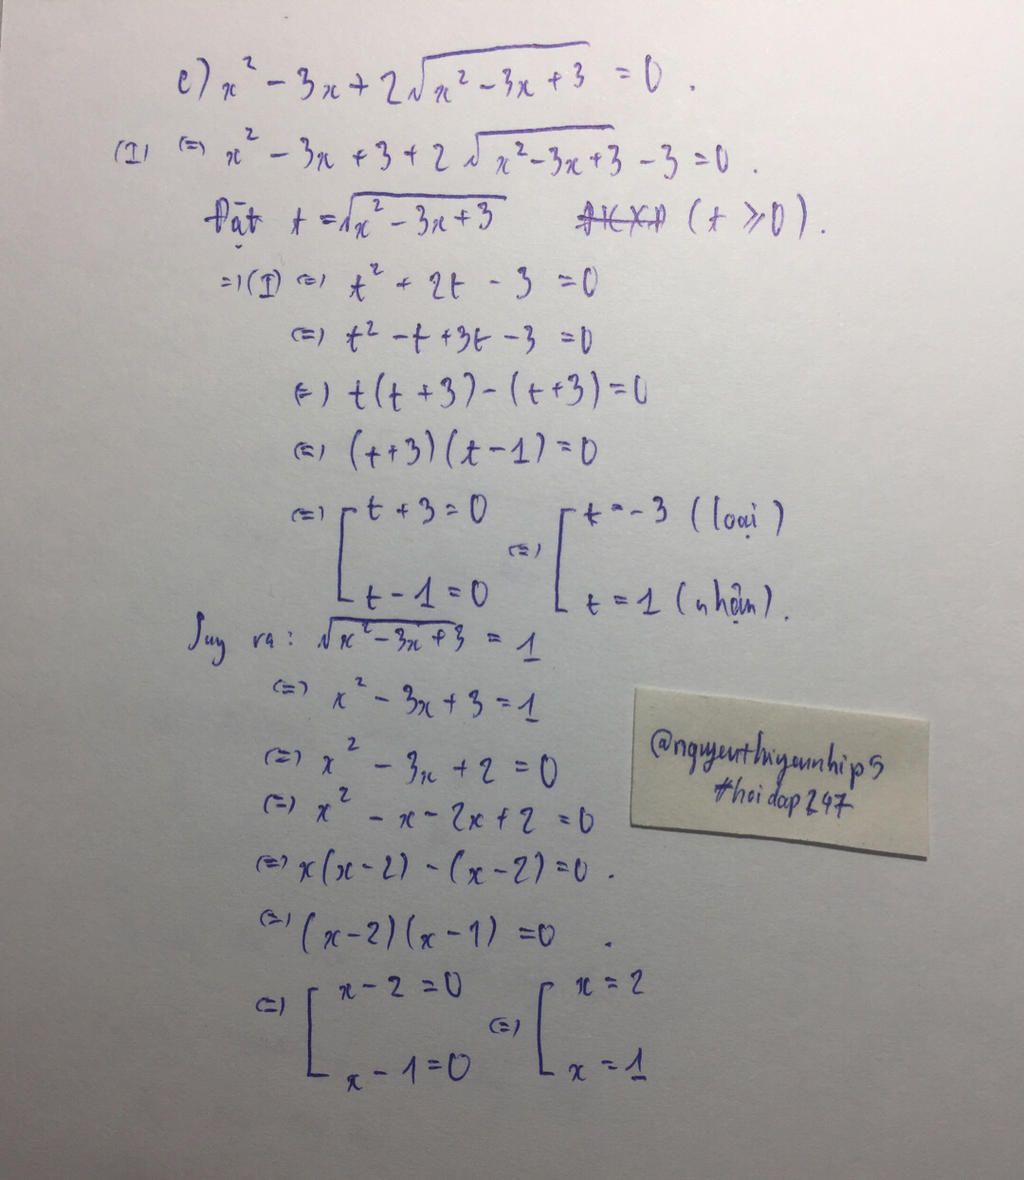 e) x² - 3x + 2√(x² - 3x + 3) = 0 .
(I) (=) x² - 3x + 3 + 2√(x² - 3x + 3) - 3 = 0 .
Đặt t = √(x² - 3x + 3) (t ⩾ 0).
=) (I) (=) t² + 2t - 3 = 0
(=) t² - t + 3t - 3 = 0
(=) t(t + 3) - (t + 3) = 0
(=) (t + 3)(t - 1) = 0
(=) [ t + 3 = 0 (=) [ t = -3 (loại)
t - 1 = 0 t = 1 (nhận).
Suy ra: √(x² - 3x + 3) = 1
(=) x² - 3x + 3 = 1
(=) x² - 3x + 2 = 0
(=) x² - x - 2x + 2 = 0
(=) x(x - 2) - (x - 2) = 0 .
(=) (x - 2)(x - 1) = 0 .
(=) [ x - 2 = 0 (=) [ x = 2
x - 1 = 0 x = 1
@nguyenthiyennhip5
#hoidap247